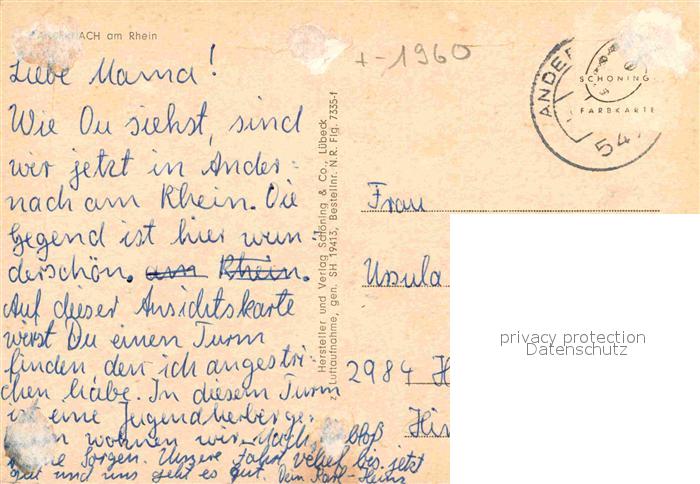 ANDERNACH am Rhein
+-1960
Liebe Mama!
Wie Du siehst, sind
wir jetzt in Ander-
nach am Rhein. Die
Gegend ist hier wun-
derschön. am Rhein.
Auf dieser Ansichtskarte
wirst Du einen Turm
finden den ich angestri-
chen habe. In diesem Turm
ist eine Jugendherberge.
wohnen wir. Mach bloß
Sorgen. Unsere Fahrt verlief bis jetzt
gut und uns geht es gut. Dein Karl-Heinz
Hersteller und Verlag Schöning & Co., Lübeck
Luftaufnahme, gen. SH 19413, Bestellnr. N.R. Flg. 7335-f
ANDER
547
SCHÖNING
FARBKARTE
Frau
Ursula
2984 H
Hin
privacy protection
Datenschutz